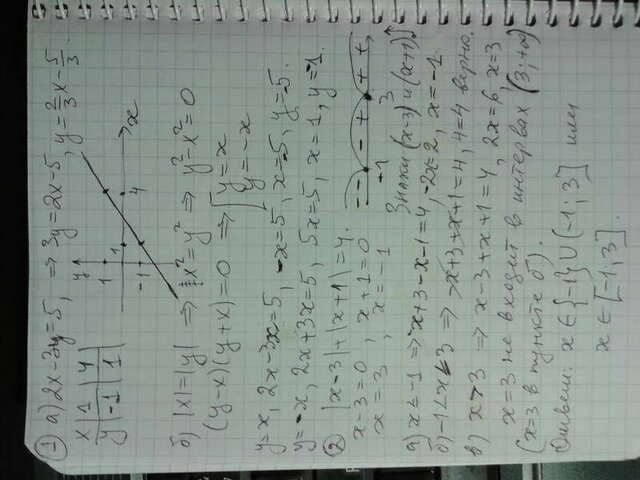 ① а) 2x-3y=5, ⇒ 3y=2x-5, y=2/3 x - 5/3
x | 1 | 4
y | -1 | 1
y
1
1
4
x
-1
б) |x|=|y| ⇒ x²=y² ⇒ y²-x²=0
(y-x)(y+x)=0 ⇒ [ y=x
y=-x
y=x, 2x-3x=5, -x=5, x=-5, y=-5.
y=-x, 2x+3x=5, 5x=5, x=1, y=-1.
② |x-3|+|x+1|=4.
x-3=0, x+1=0
x=3, x=-1
-- -+ ++
-1 3
Знаки (x-3) и (x+1)
а) x≤-1 ⇒ -x+3-x-1=4, -2x=2, x=-1.
б) -1<x≤3 ⇒ -x+3+x+1=4, 4=4 верно.
в) x>3 ⇒ x-3+x+1=4, 2x=6, x=3
x=3 не входит в интервал (3;+∞)
(x=3 в пункте б).
Ответ: x∈{-1}∪(-1;3] или
x∈[-1;3].